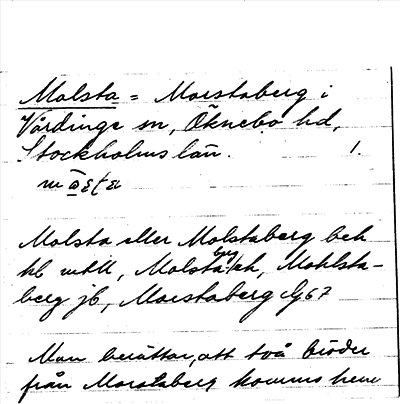 Molsta = Morstaberg i
Vårdinge sn, Öknebo hd,
Stockholms län. 1.
Molsta eller Molstaberg
Molsta berg
berg jb, Morstaberg
Man berättar, att två bröder
från Morstaberg kommo hem